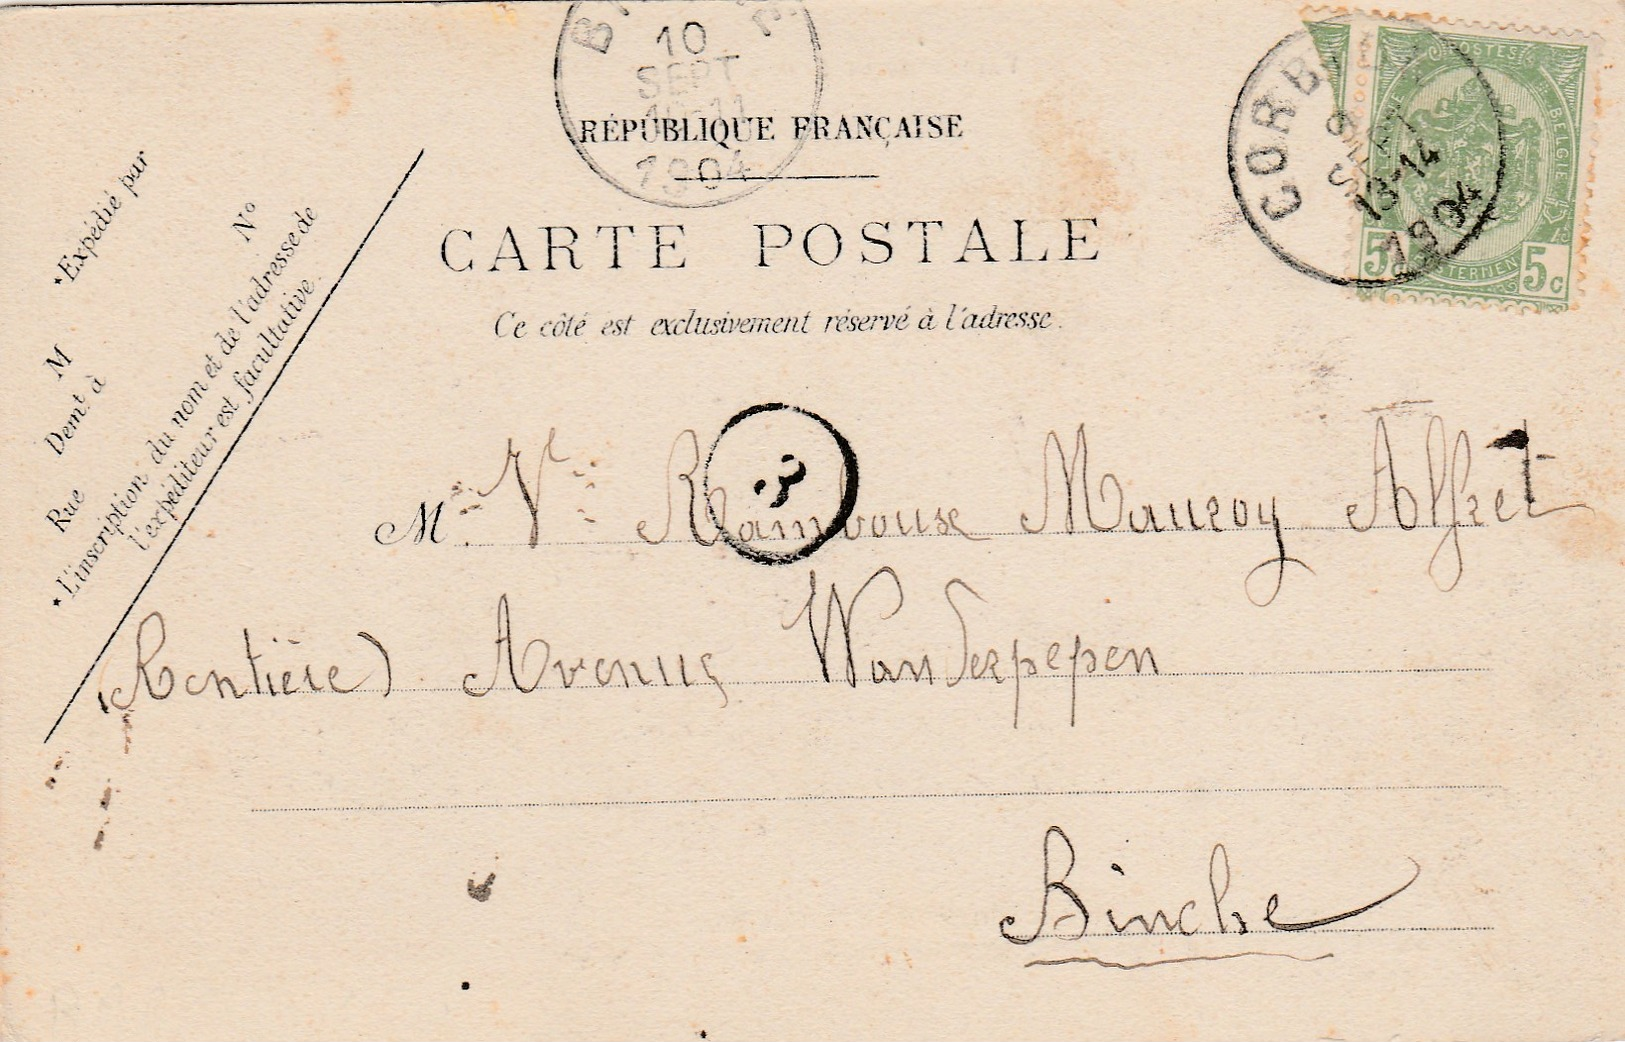 10
SEPT
1904
RÉPUBLIQUE FRANÇAISE
CARTE POSTALE
Ce côté est exclusivement réservé à l'adresse.
*Expédié par
M
Demt. à
Rue
N°
*L'inscription du nom et de l'adresse de
l'expéditeur est facultative.
CORB
9
SEPT
13-14
1904
POSTES
BELGIE
5c
5c
3
M. Ve Ramboux Mauroy Alfret
(Rentière) Avenue Wanderpepen
Binche